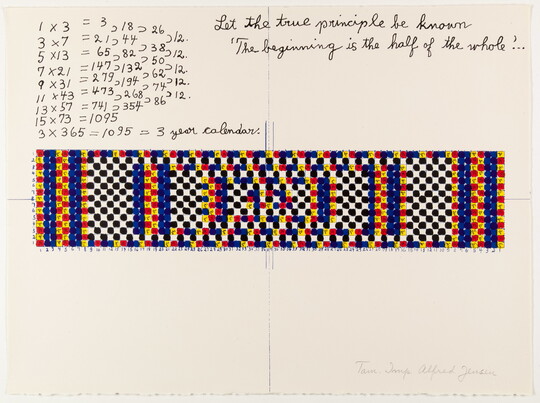 1 × 3 = 3 18 26
3 × 7 = 21 44 12.
5 × 13 = 65 82 38 12.
7 × 21 = 147 132 50 12.
9 × 31 = 279 194 62 12.
11 × 43 = 473 268 74 12.
13 × 57 = 741 354 86
15 × 73 = 1095
3 × 365 = 1095 = 3 year calendar.
Let the true principle be known
'The beginning is the half of the whole'...
Tam. Imp. Alfred Jensen